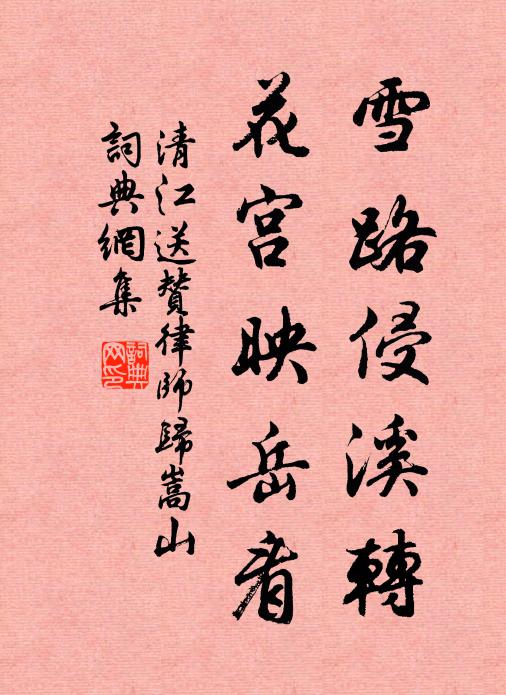 雪路侵溪轉
花宮映岳看
清江送贊律師歸嵩山
詞典網集
詞典
网印